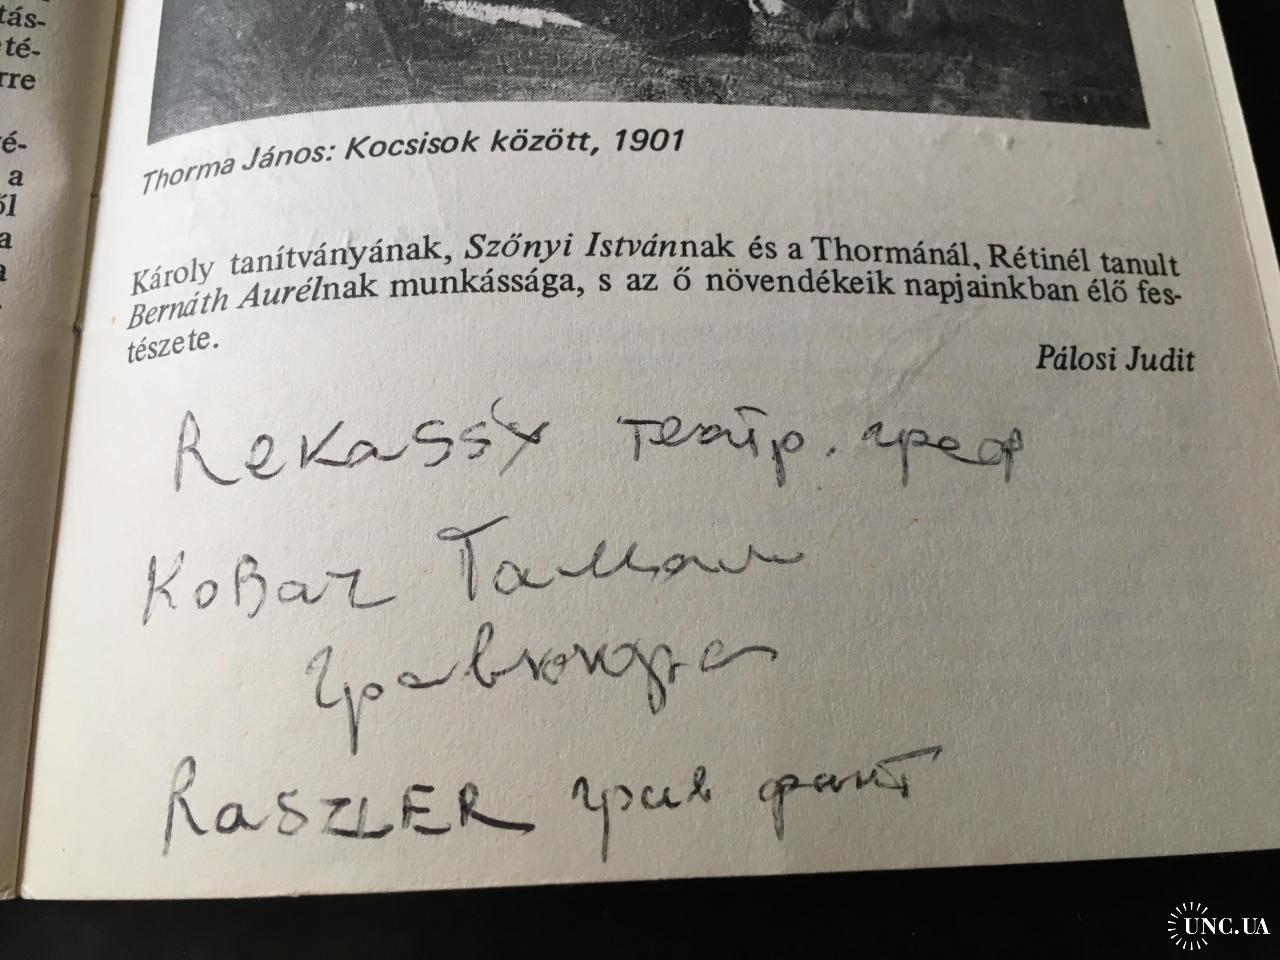 tás-
té-
rre
é-
a
ől
a
a
Thorma János: Kocsisok között, 1901
Károly tanítványának, Szőnyi Istvánnak és a Thormánál, Rétinél tanult
Bernáth Aurélnak munkássága, s az ő növendékeik napjainkban élő fes-
tészete.
Pálosi Judit
Rekassy театр. граф
Ковач Тамаш
гравюра
RASZLER грав фант
UNC.UA